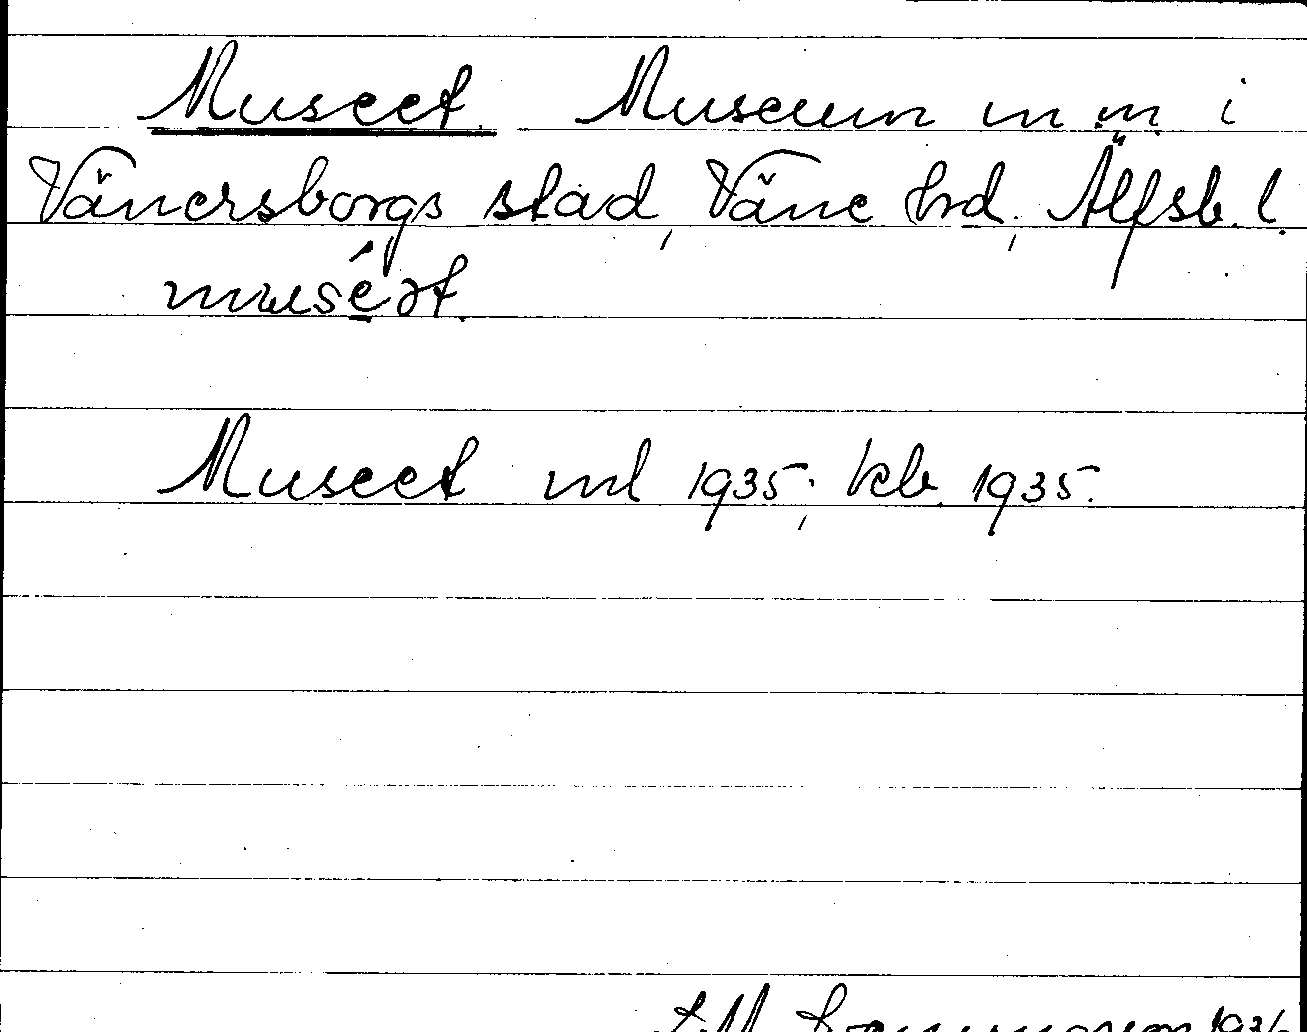 Museet. Museum m. m. i
Vänersborgs stad, Väne hrd, Älfsb. l.
muséət.
Museet ml 1935; kb. 1935.